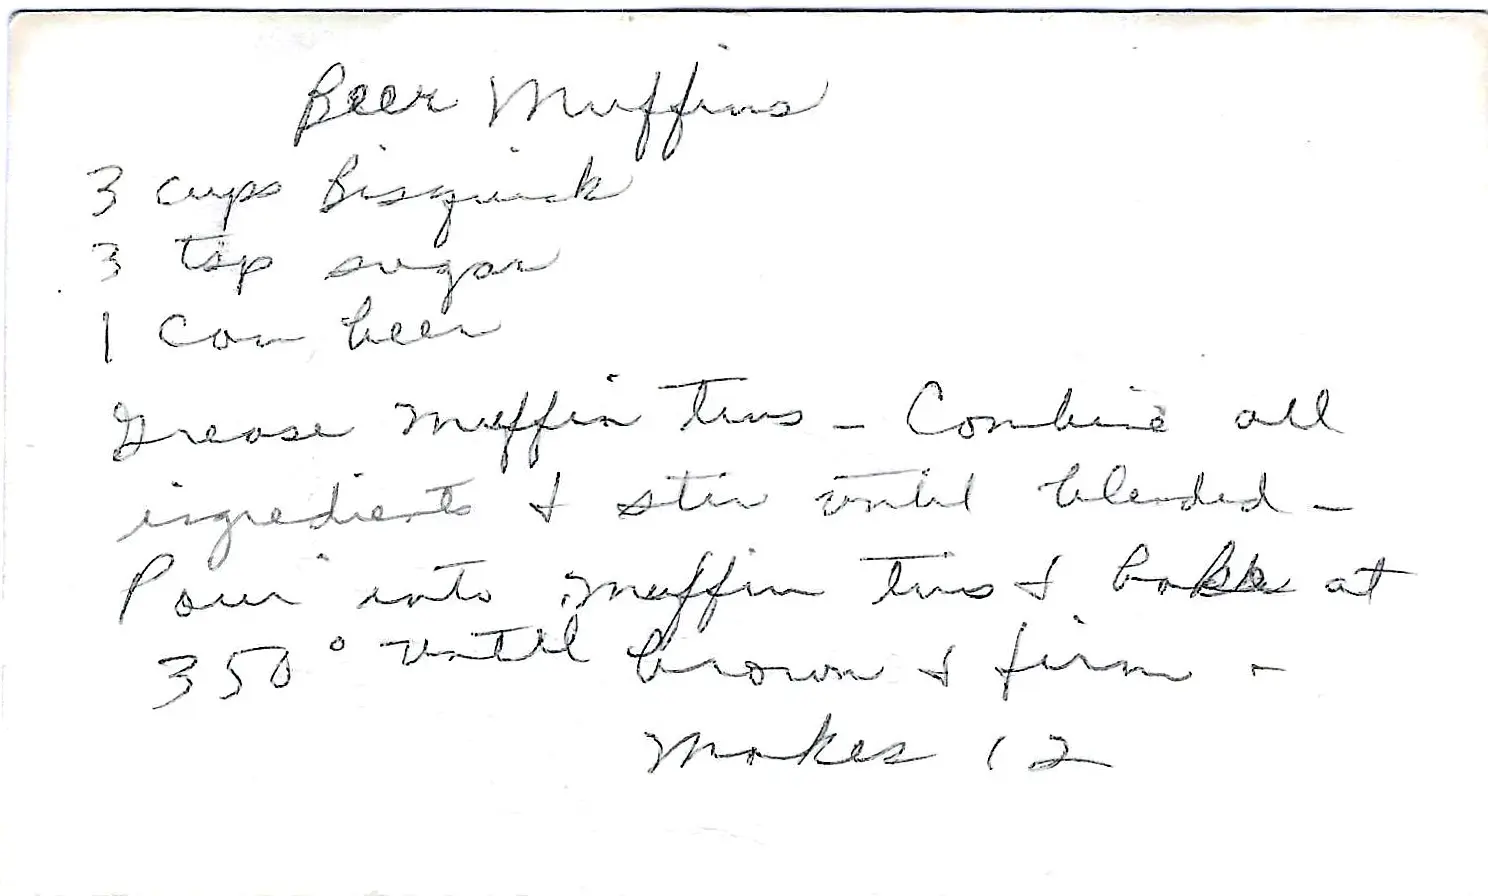 Beer Muffins
3 cups Bisquick
3 tsp sugar
1 Can beer
Grease muffin tins - Combine all
ingredients & stir until blended -
Pour into muffin tins & bake at
350° until brown & firm -
Makes 12